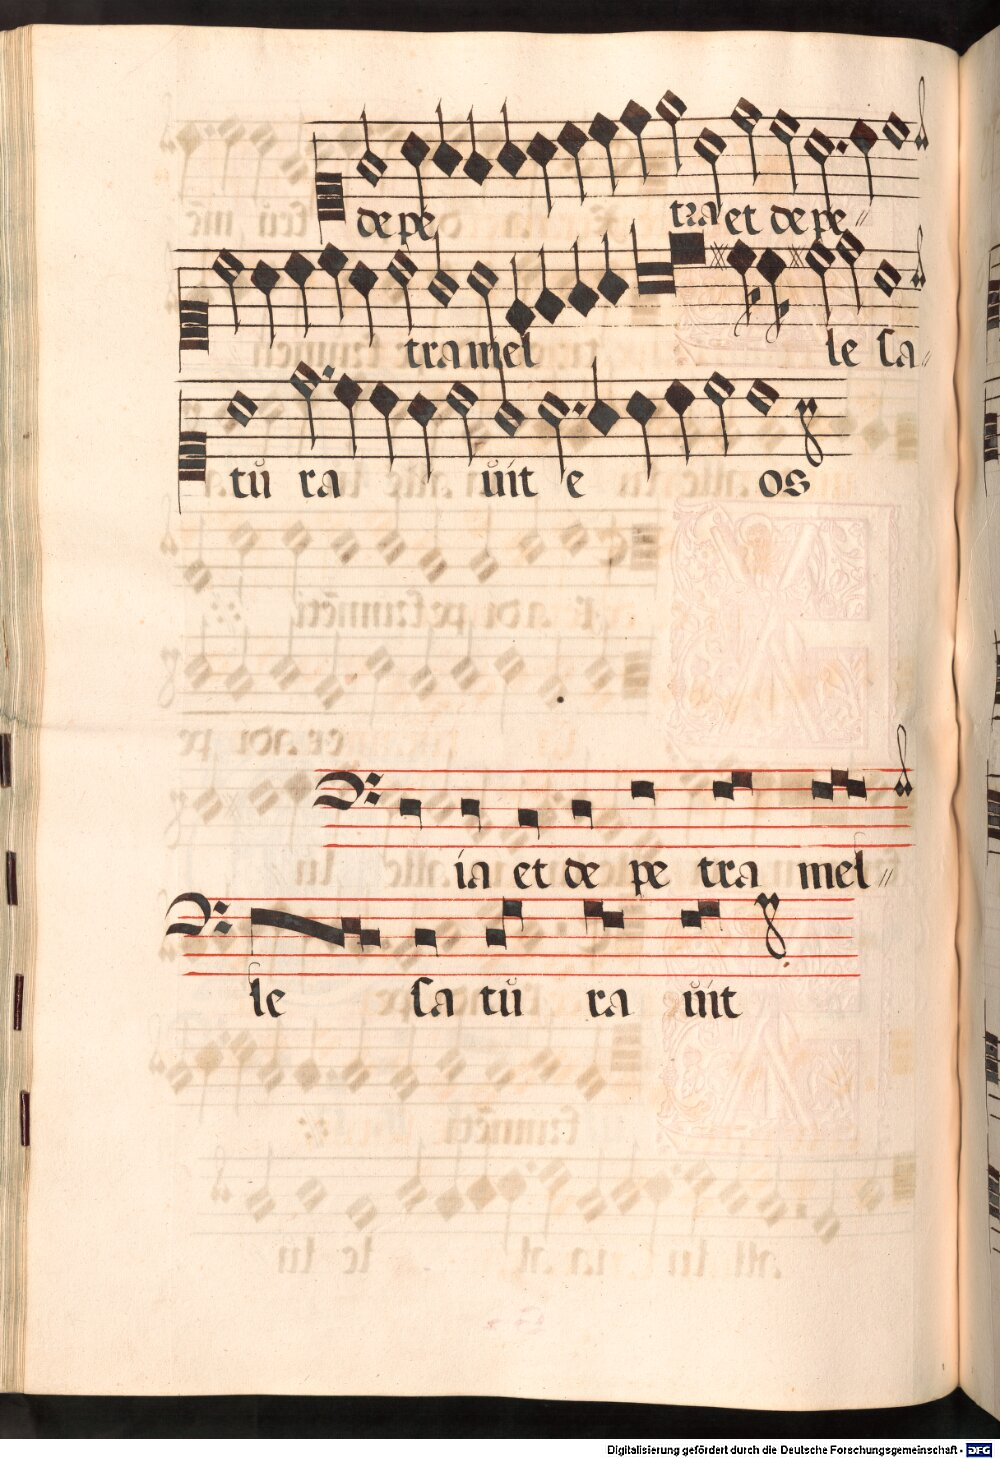 de pe tra et de pe〃
tra mel le sa〃
tŭ ra ŭit e os
ia et de pe tra mel〃
le sa tŭ ra ŭit
Digitalisierung gefördert durch die Deutsche Forschungsgemeinschaft - DFG